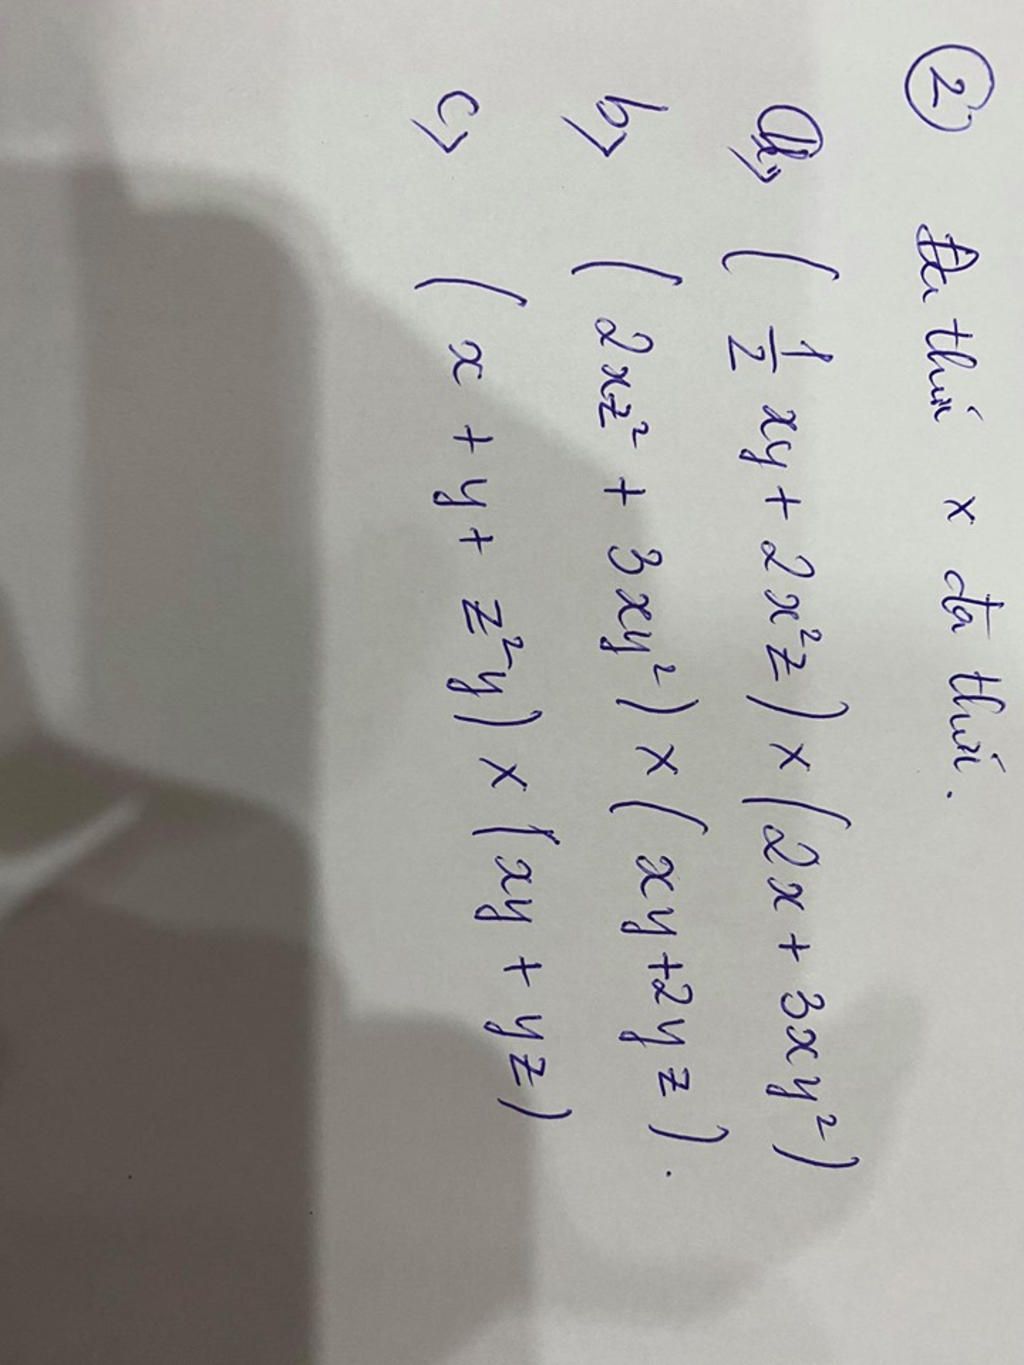 ② Đa thức x đa thức.
a, ( 1/2 xy + 2x²z ) x ( 2x + 3xy² )
b, ( 2xz² + 3xy² ) x ( xy + 2yz ).
c, ( x + y + z²y ) x ( xy + yz )